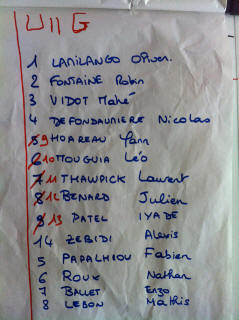 U11 G
1 LAMILANGO Oliver.
2 FONTAINE Robin
3 VIDOT Mahé
4 DEFONDAUNIERE Nicolas
5 9 HOAREAU Yann
6 10 MOUGUIA Léo
7 11 THAWPICK Laurent
8 12 BENARD Julien
9 13 PATEL IYADE
14 ZEBIDI Alexis
5 PAPALHIOU Fabien
6 ROUX Nathan
7 BALLET Enzo
8 LEBON Mathis